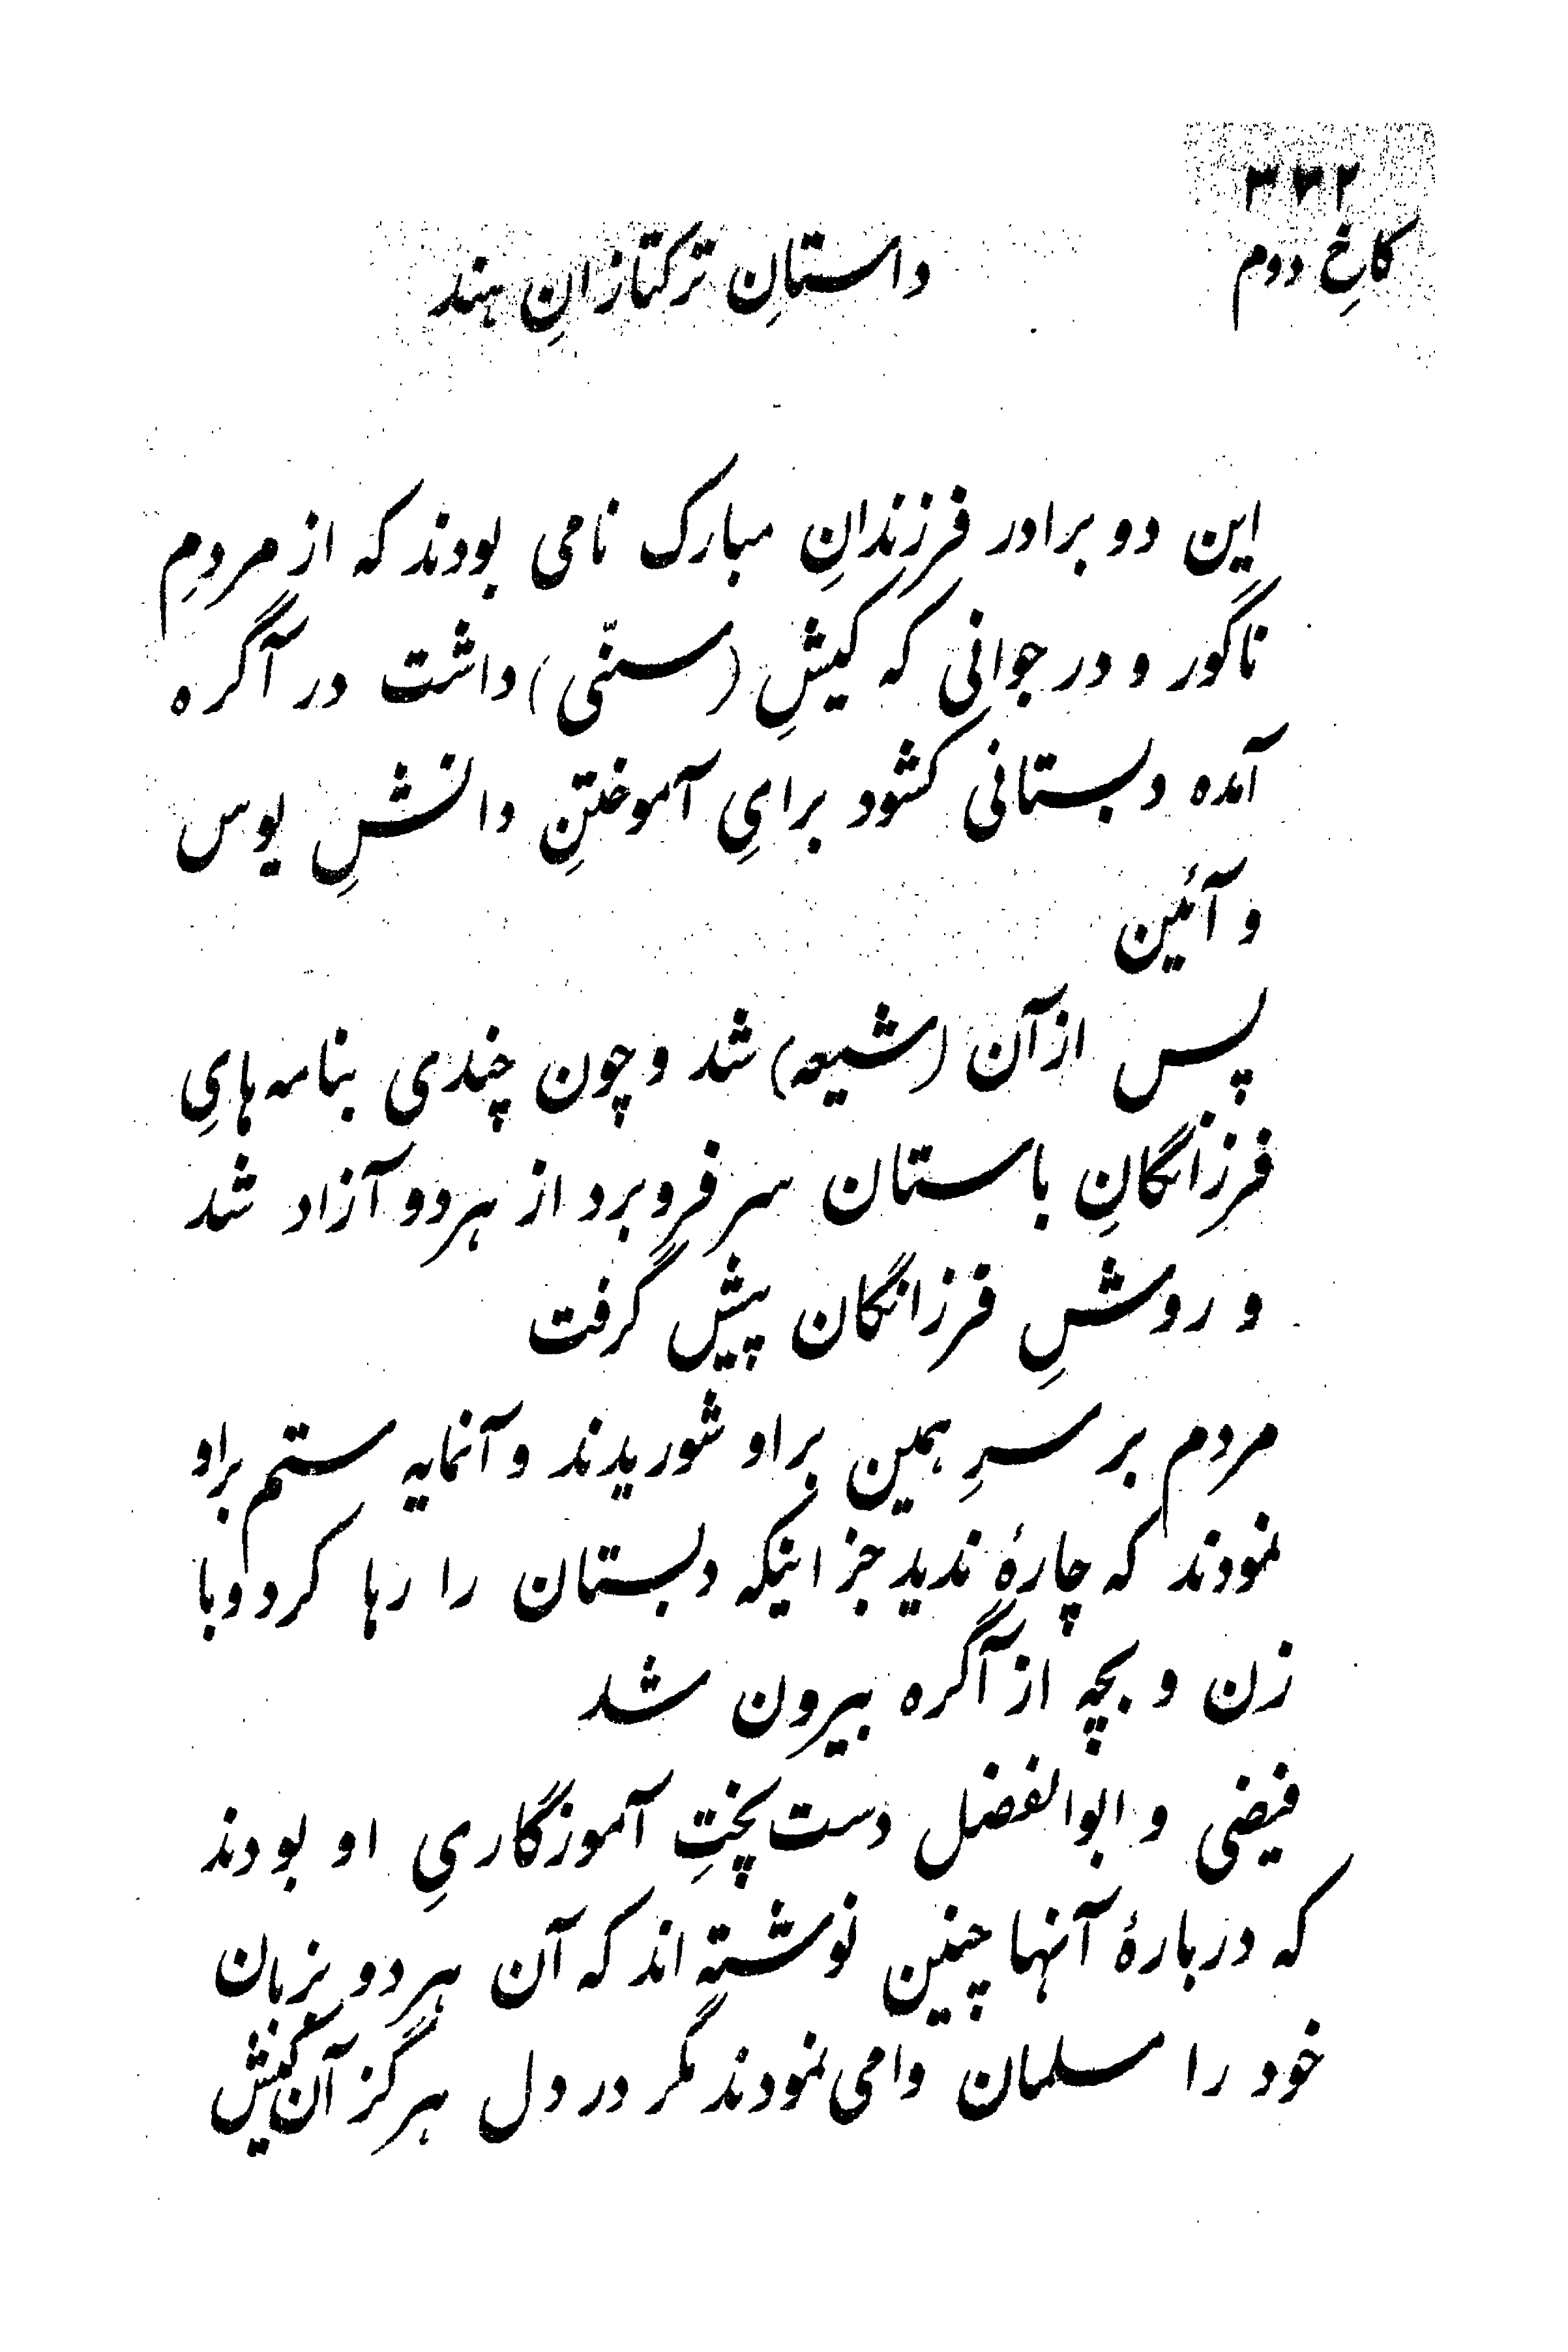 کاخِ دوم
داستانِ ترکتازانِ هند
این دو برادر فرزندانِ مبارک نامی بودند که از مردمِ
ناگور و در جوانی که کیشِ (سنّی) داشت در آگره
آمده دبستانی کشود برایِ آموختنِ دانشِ یوس
و آئین
پس از آن (شیعه) شد و چون چندی بنامه‌هایِ
فرزانگانِ باستان سر فرو برد از هر دو آزاد شد
و روشِ فرزانگان پیش گرفت
مردم بر سرِ همین بر او شوریدند و آنمایه ستم بر او
نمودند که چارهٔ ندید جز اینکه دبستان را رها کرد و با
زن و بچه از آگره بیرون شد
فیضی و ابوالفضل دست‌پختِ آموزگاریِ او بودند
که دربارهٔ آنها چنین نوشته‌اند که آن هر دو بزبان
خود را مسلمان وامی‌نمودند مگر در دل هرگز آن کیش